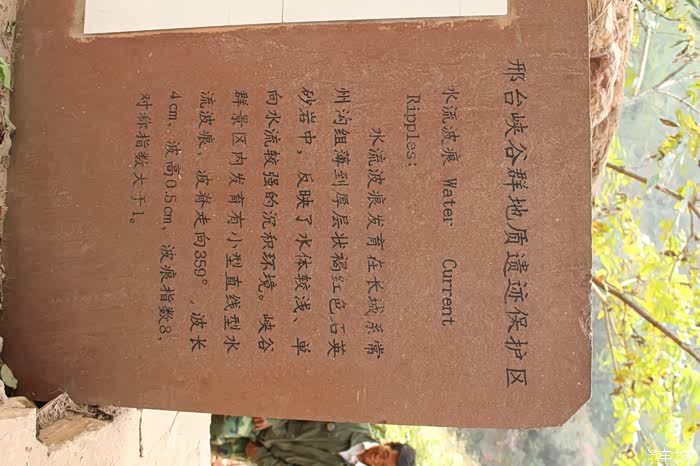 邢台峡谷群地质遗迹保护区
水流波痕 Water Current
Ripples:
水流波痕发育在长城系常
州沟组薄到厚层状褐红色石英
砂岩中，反映了水体较浅、单
向水流较强的沉积环境。峡谷
群景区内发育有小型直线型水
流波痕，波脊走向359°，波长
4cm，波高0.5cm，波痕指数8，
对称指数大于1。